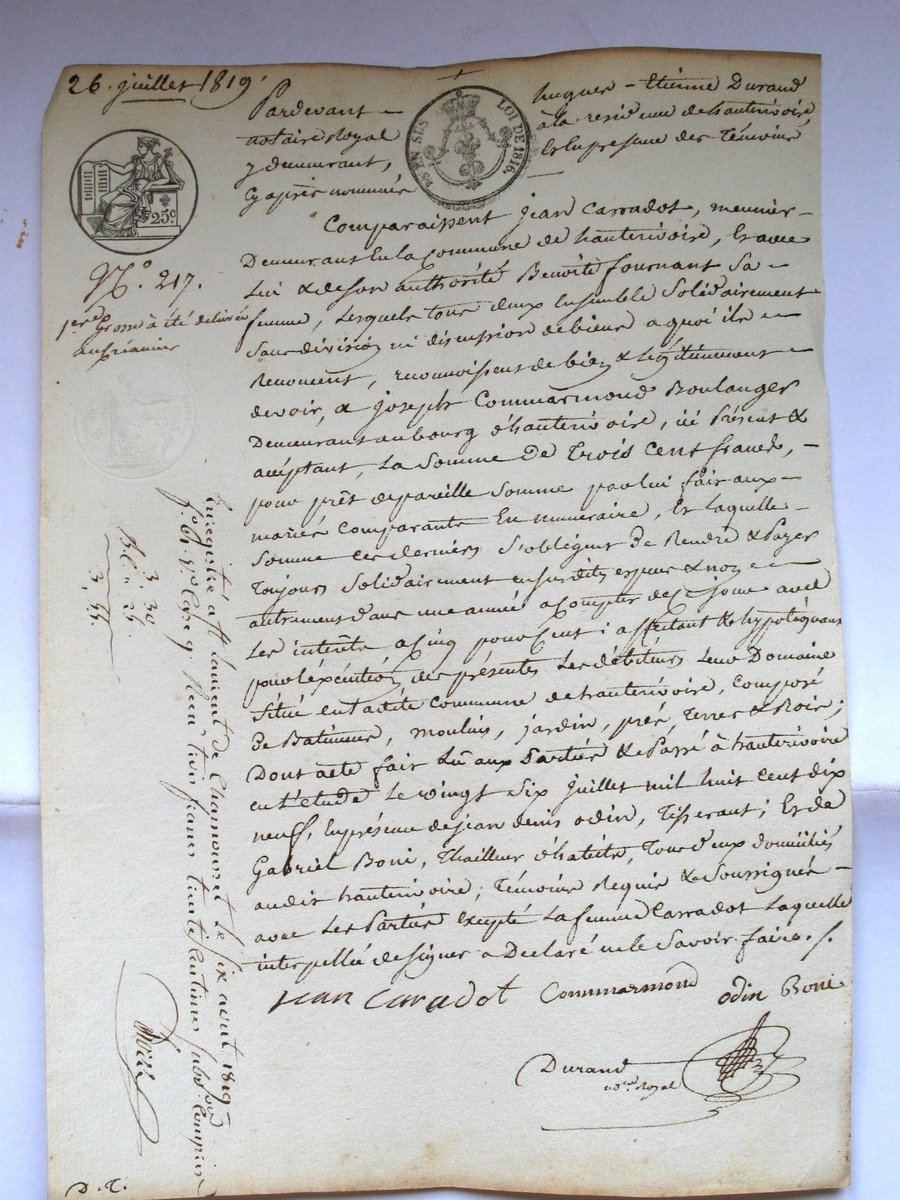 26. juillet 1819.
Pardevant hugues - Etienne Durand
notaire Royal à la residence de hauterivoire,
y demeurant, Et En presence des Témoins
cy après nommés
EN SUS LOI DE 1816.
25c.
N.º 217.
1ere grosse à été délivrée
au créancier
Comparaissent jean Carradot, meunier
Demeurant En la Commune de hauterivoire, Et avec
Lui & de son authorité Benoite fournant Sa
femme, Lesquels tous deux Ensemble Solidairement
Sans division ni discussion de biens a quoi ils
Renoncent, reconnoissent de bien & légitimement
devoir, a joseph Commarmond Boulanger
Demeurant au bourg d'hauterivoire, ici Présent &
acceptant, La Somme De Trois Cent francs,
pour prêt de pareille Somme par lui fait aux
mariés Comparants En numeraire, Et laquelle
Somme ces derniers S'obligent De Rendre & Payer
Toujours Solidairement en susdites espèces & non
autrement dans une année a compter de ce jour avec
Les interêts a cinq pour cent; affectant & hypotéquant
pour l'éxécution des présentes Les débiteurs Leur Domaine
Situé en ladite Commune de hauterivoire, Composé
De Batiments, moulins, jardin, prés, Terres & Bois;
Dont acte fait Lû aux Parties & Passé à hauterivoire
en l'etude Le vingt Six Juillet mil huit cent dix
neuf, En présence de jean denis odin, Tisserant; Et de
Gabriel Boni, Thailleur d'habits, Tous deux domiciliés
audit hauterivoire; Témoins Requis & Soussignés
avec Les Parties Excepté La femme Carradot Laquelle
interpellée de signer a Déclaré ne le Savoir faire. /.
jean Caradot Commarmond odin Boni
Durand
no.re Royal
Enregistré a St laurent de Chamousset le six août 1819
f.º 61 v.º case 9. Recu trois francs trente centimes subv.on Comprise
3, 30
25
3, 55
D. T.